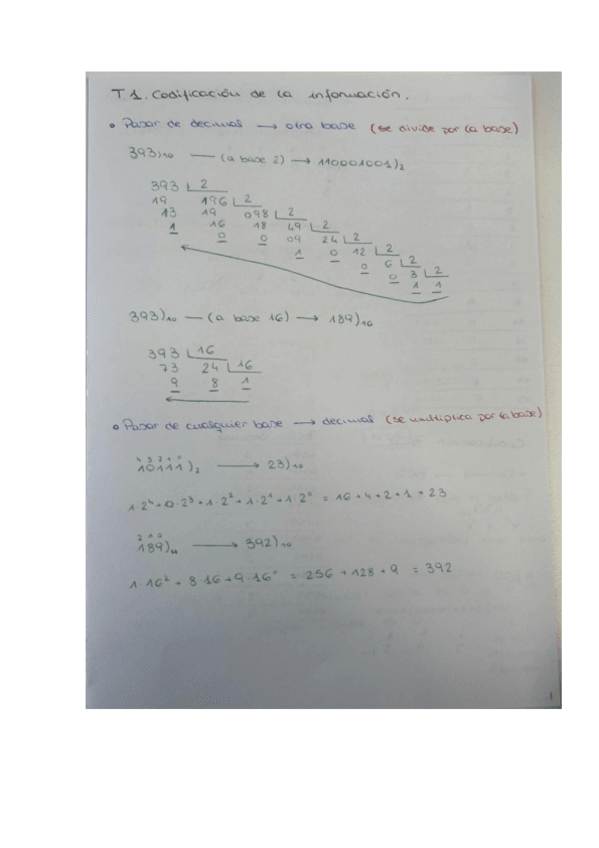 T 1. Codificación de la información.
• Pasar de decimal → otra base (se divide por la base)
393)₁₀ — (a base 2) → 110001001)₂
393 2
19 196 2
13 19 098 2
1 16 18 49 2
0 0 09 24 2
1 0 12 2
0 6 2
0 3 2
1 1
393)₁₀ — (a base 16) → 189)₁₆
393 16
73 24 16
9 8 1
• Pasar de cualquier base → decimal (se multiplica por la base)
4 3 2 1 0
10111)₂ → 23)₁₀
1·2⁴+0·2³+1·2²+1·2¹+1·2⁰ = 16+4+2+1+23
2 1 0
189)₁₆ → 392)₁₀
1·16²+8·16+9·16⁰ = 256+128+9 = 392
1